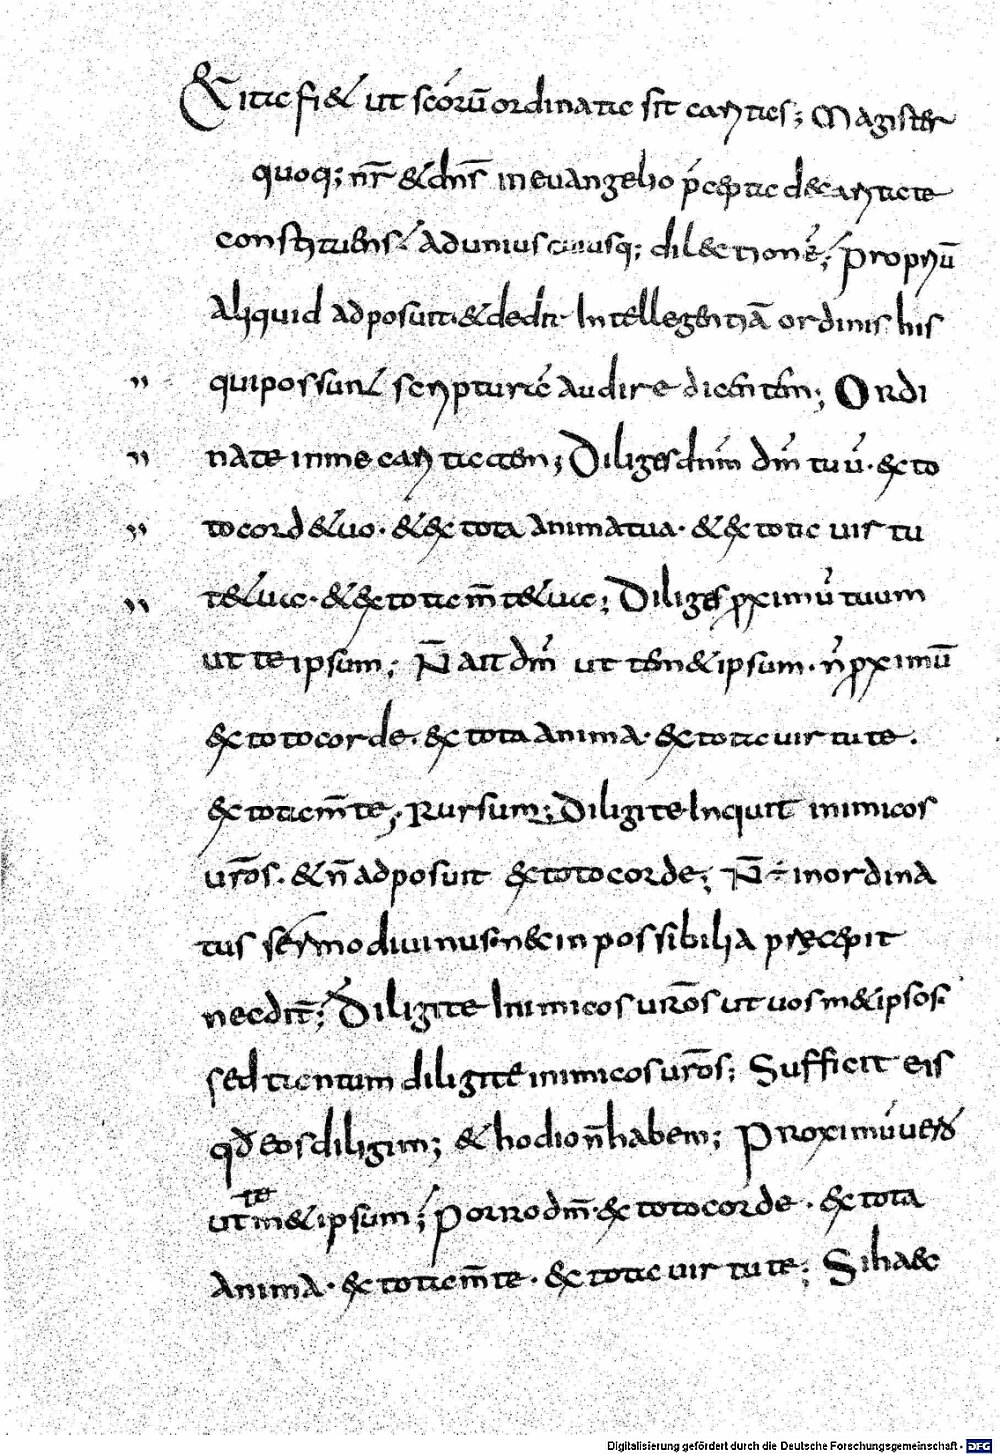 Et ita fiet ut scōrū ordinata sit caritas; Magister
quoq; nr̄ & dn̄s in euangelio p̄cepta de caritate
constituens. Ad uniuscuiusq; dilectionē; Propriū
aliquid adposuit. & dedit Intellegentiā ordinis his
qui possunt scripturā audire dicentem; Ordi
nate in me caritatem; Diliges dn̄m dm̄ tuū. ex to
to corde tuo. & ex tota anima tua. & ex tota uirtu
te tua. & ex tota m̄te tua; Diliges pxīmū tuum
ut te ipsum; N̄ ait dm̄ ut temet ipsum. n̄ pximū
ex toto corde. ex tota anima. ex tota uirtute.
ex tota m̄te. Rursum; Diligite Inquit inimicos
ur̄os. & n̄ adposuit ex toto corde; N̄ ÷ inordina
tus sermo diuinus nec inpossibilia pręcepit
nec dic̄; Diligite Inimicos ur̄os ut uosmet ipsos.
sed tantum diligite inimicos ur̄os; Sufficit eis
qđ eos diligim; & hodio n̄ habem; Proximū uero
ut temet ipsum; Porro dm̄. ex toto corde. ex tota
anima. ex tota m̄te. ex tota uirtute; Si haec
Digitalisierung gefördert durch die Deutsche Forschungsgemeinschaft - DFG